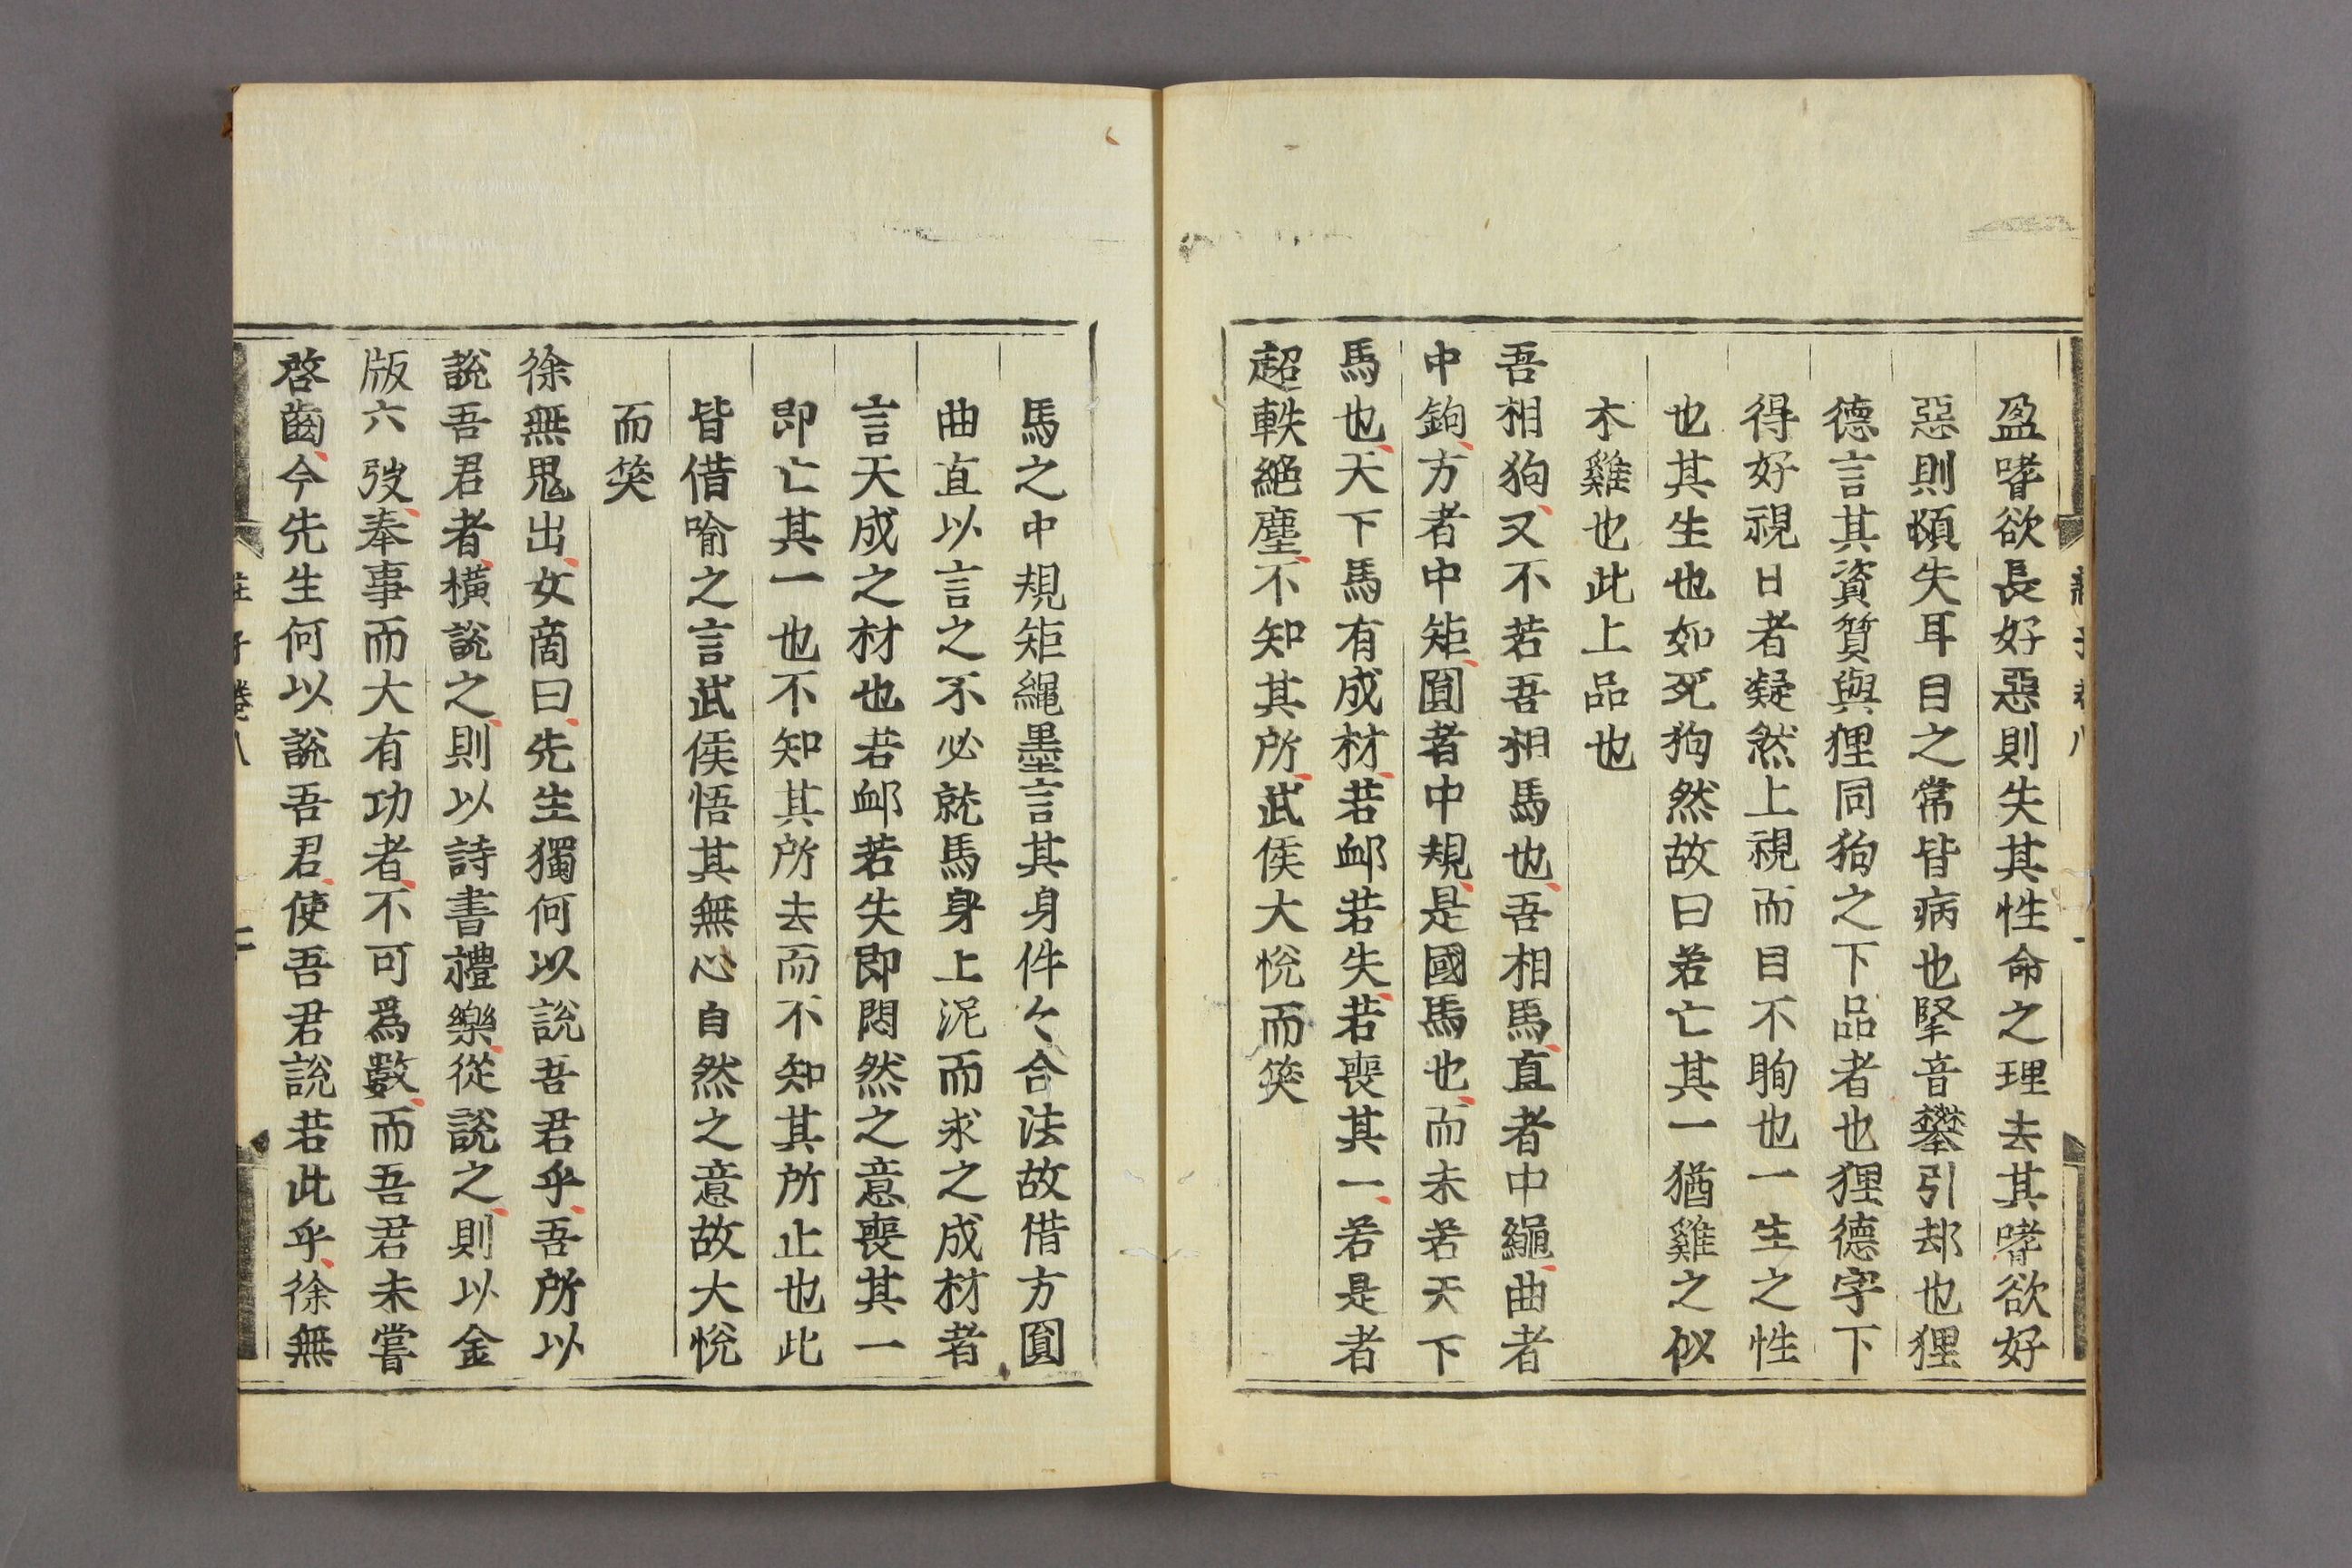 盈嗜欲長好惡則失其性命之理去其嗜欲好
惡則頓失耳目之常皆病也掔音攀引却也狸
德言其資質與狸同狗之下品者也狸德字下
得好視日者凝然上視而目不眴也一生之性
也其生也如死狗然故曰若亡其一猶雞之似
木雞也此上品也
吾相狗又不若吾相馬也吾相馬直者中繩曲者
中鉤方者中矩圓者中規是國馬也而未若天下
馬也天下馬有成材若䘏若失若喪其一若是者
超軼絕塵不知其所武侯大悅而笑
馬之中規矩繩墨言其身件々合法故借方圓
曲直以言之不必就馬身上泥而求之成材者
言天成之材也若䘏若失即悶然之意喪其一
即亡其一也不知其所去而不知其所止也此
皆借喻之言武侯悟其無心自然之意故大悅
而笑
徐無鬼出女商曰先生獨何以說吾君乎吾所以
說吾君者橫說之則以詩書禮樂從說之則以金
版六弢奉事而大有功者不可爲數而吾君未嘗
啓齒今先生何以說吾君使吾君說若此乎徐無
莊子卷八